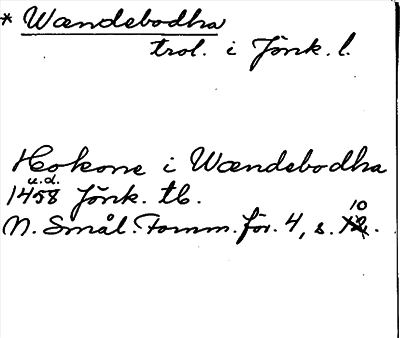 * Wændebodha
trol. i Jönk. l.
Hokone i Wændebodha
u.d.
1458 Jönk. tb.
N. Smål. Fornm. för. 4, s. 10.